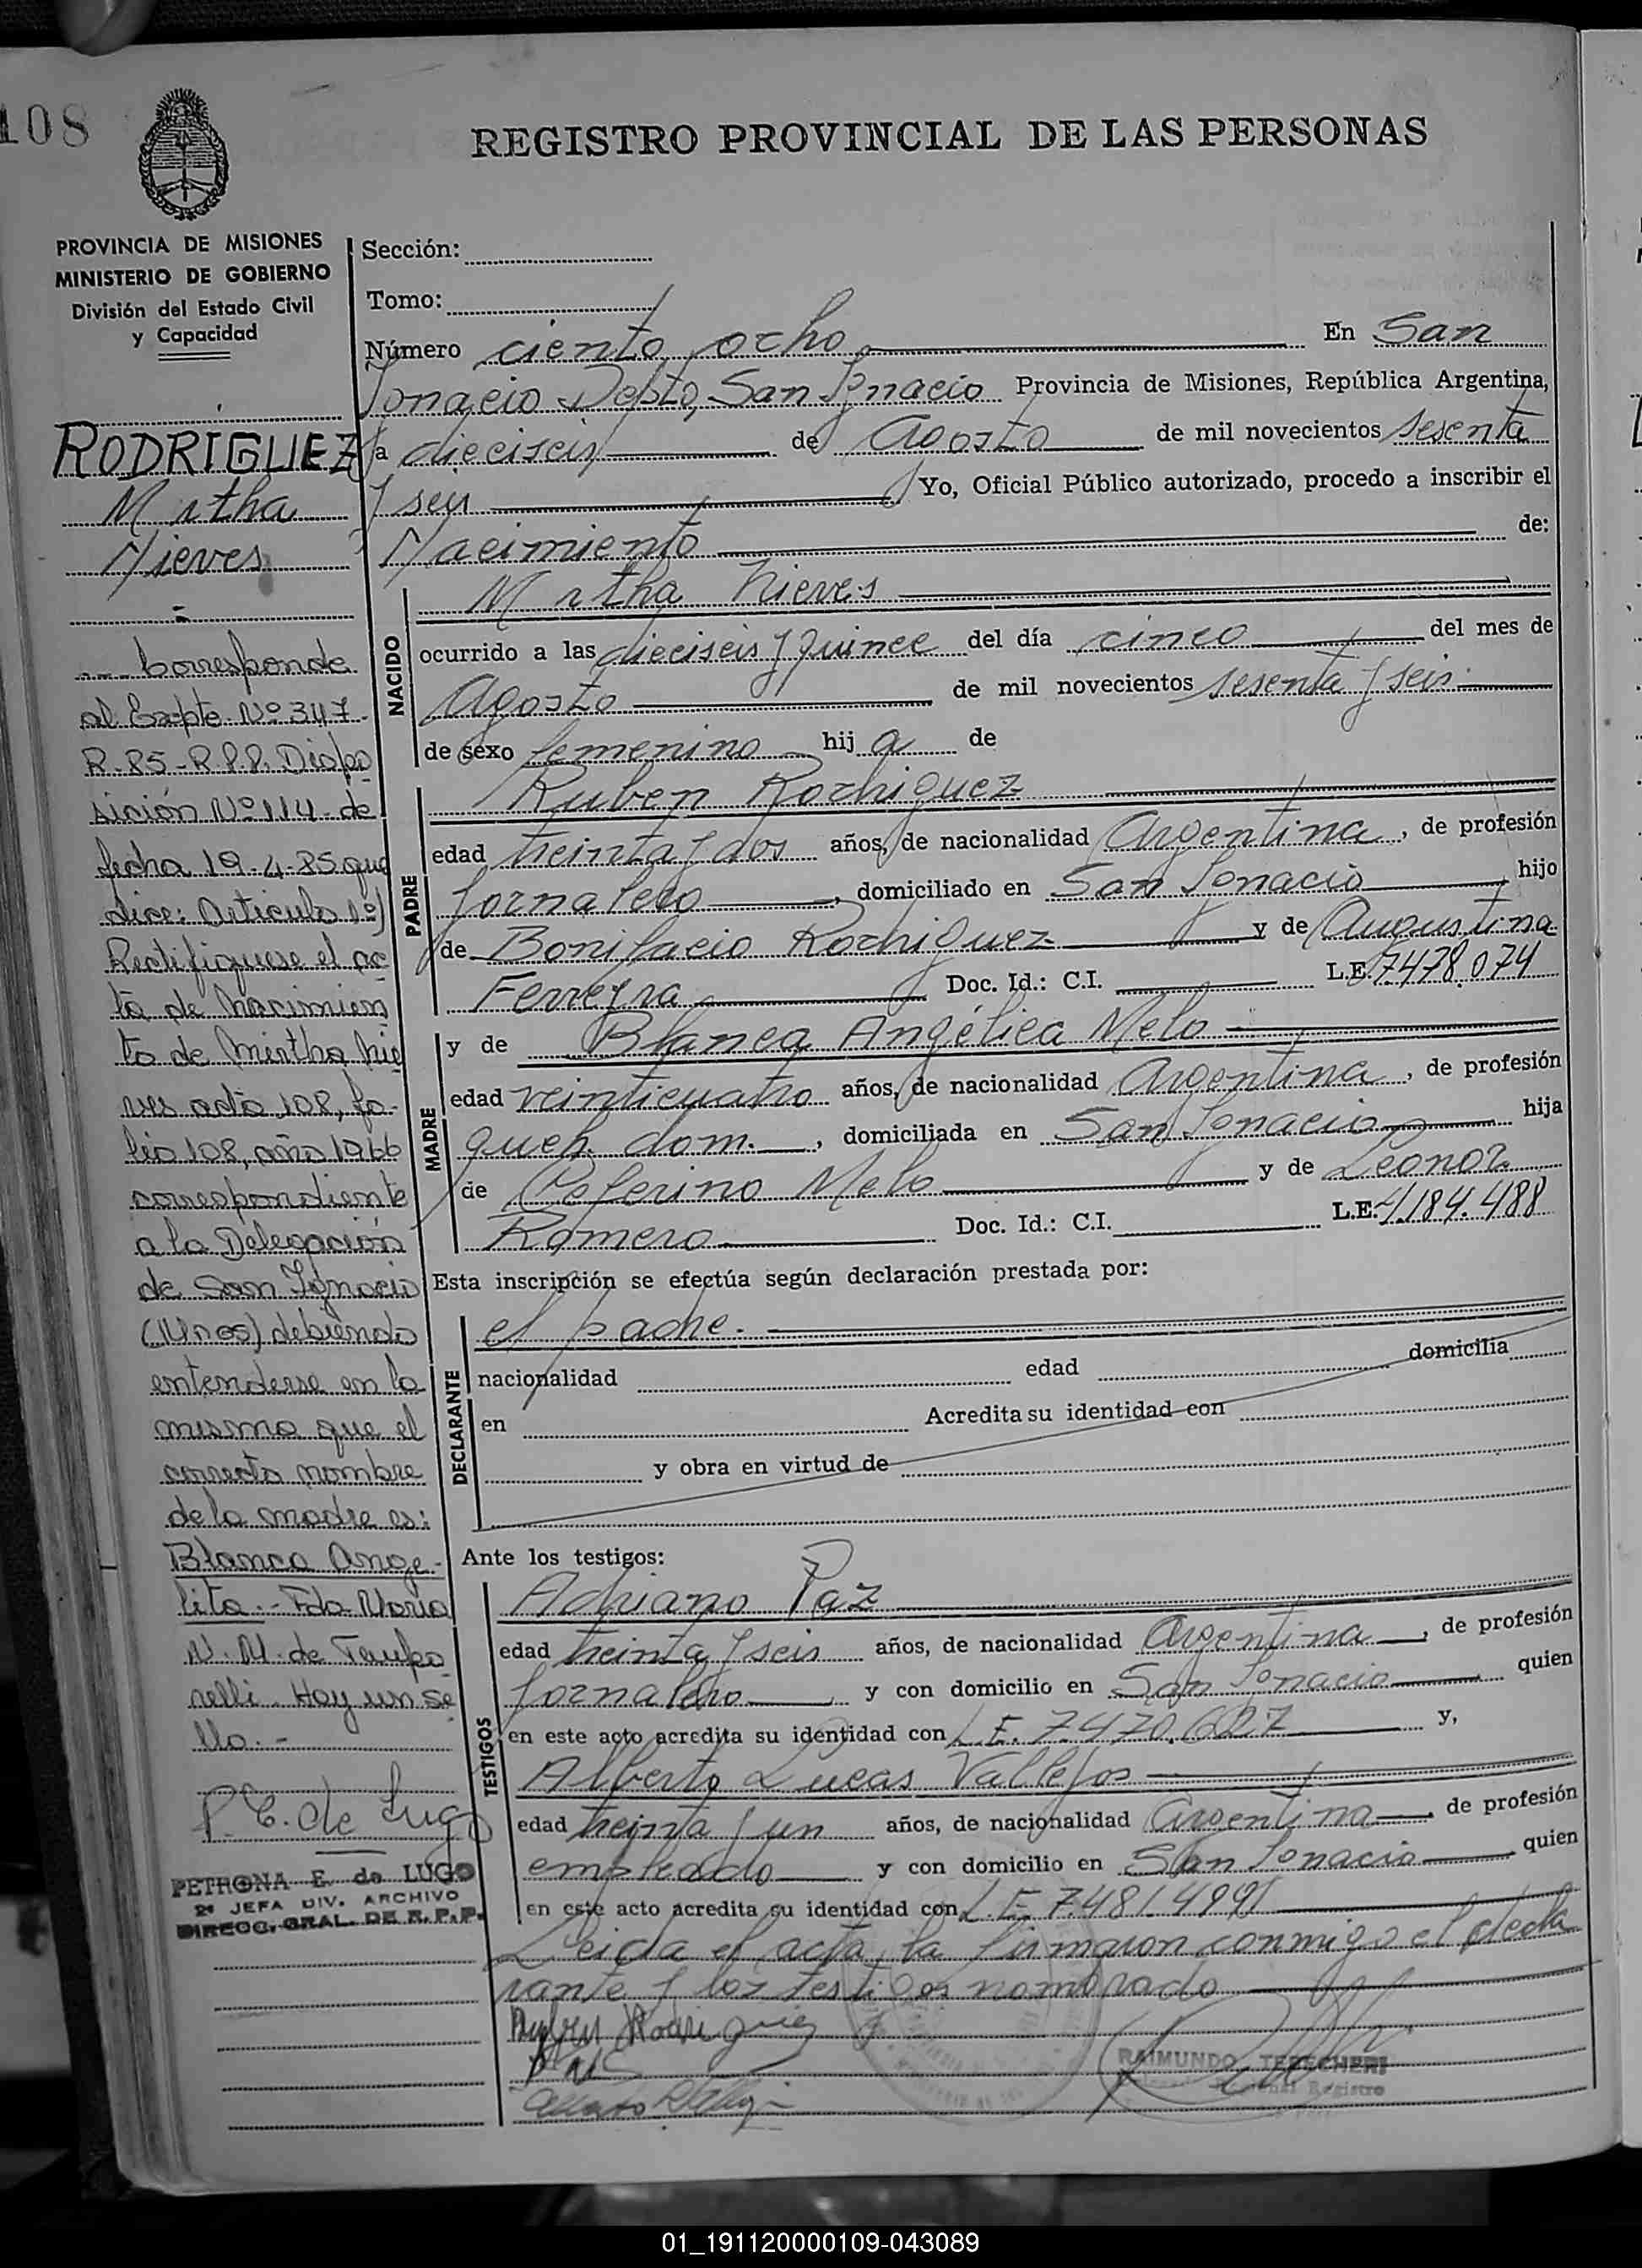 108
REGISTRO PROVINCIAL DE LAS PERSONAS
PROVINCIA DE MISIONES
MINISTERIO DE GOBIERNO
División del Estado Civil
y Capacidad
RODRIGUEZ
Mirtha
Nieves
-
--- Corresponde
al Expte. Nº 347
R-85-R.P.P. Dispo
sición Nº 114 de
fecha 19-4-85 que
dice: Artículo 1º)
Rectifiquese el ac
ta de nacimien
to de Mirtha Nie
ves acta 108, fo-
lio 108, año 1966
correspondiente
a la Delegación
de San Ignacio
(Mnes) debiendo
entenderse en la
misma que el
correcto nombre
de la madre es:
Blanca Ange-
lita.- Fdo María
N. M. de
Hay un se
llo.-
P. E. de Lugo
PETRONA E. de LUGO
2º JEFA DIV. ARCHIVO
DIRECC. GRAL. DE R.P.P.
Sección:
Tomo:
Número ciento ocho En San
Ignacio Depto. San Ignacio Provincia de Misiones, República Argentina,
a dieciseis de Agosto de mil novecientos sesenta
y seis Yo, Oficial Público autorizado, procedo a inscribir el
Nacimiento de:
NACIDO
Mirtha Nieves
ocurrido a las dieciseis y quince del día cinco del mes de
Agosto de mil novecientos sesenta y seis
de sexo femenino hija de
PADRE
Ruben Rodriguez
edad treinta y dos años, de nacionalidad Argentina, de profesión
Jornalero, domiciliado en San Ignacio hijo
de Bonifacio Rodriguez y de Augustina
Ferreyra Doc. Id.: C.I. L.E. 7478.074
MADRE
y de Blanca Angélica Melo
edad veinticuatro años, de nacionalidad Argentina, de profesión
queh. dom., domiciliada en San Ignacio hija
de Ceferino Melo y de Leonor
Romero Doc. Id.: C.I. L.E. 4.184.488
Esta inscripción se efectúa según declaración prestada por:
DECLARANTE
el padre.
nacionalidad edad domicilia
en Acredita su identidad con
y obra en virtud de
Ante los testigos:
TESTIGOS
Adriano Paz
edad treinta y seis años, de nacionalidad Argentina, de profesión
Jornalero y con domicilio en San Ignacio quien
en este acto acredita su identidad con L.E. 7.470.627 y,
Alberto Lucas Vallejos
edad treinta y un años, de nacionalidad Argentina, de profesión
empleado y con domicilio en San Ignacio quien
en este acto acredita su identidad con L.E. 7.481.499
Leida el acta, la firmaron conmigo el decla
rante y los testigos nombrado
Ruben Rodriguez
RAIMUNDO
Registro
01_191120000109-043089